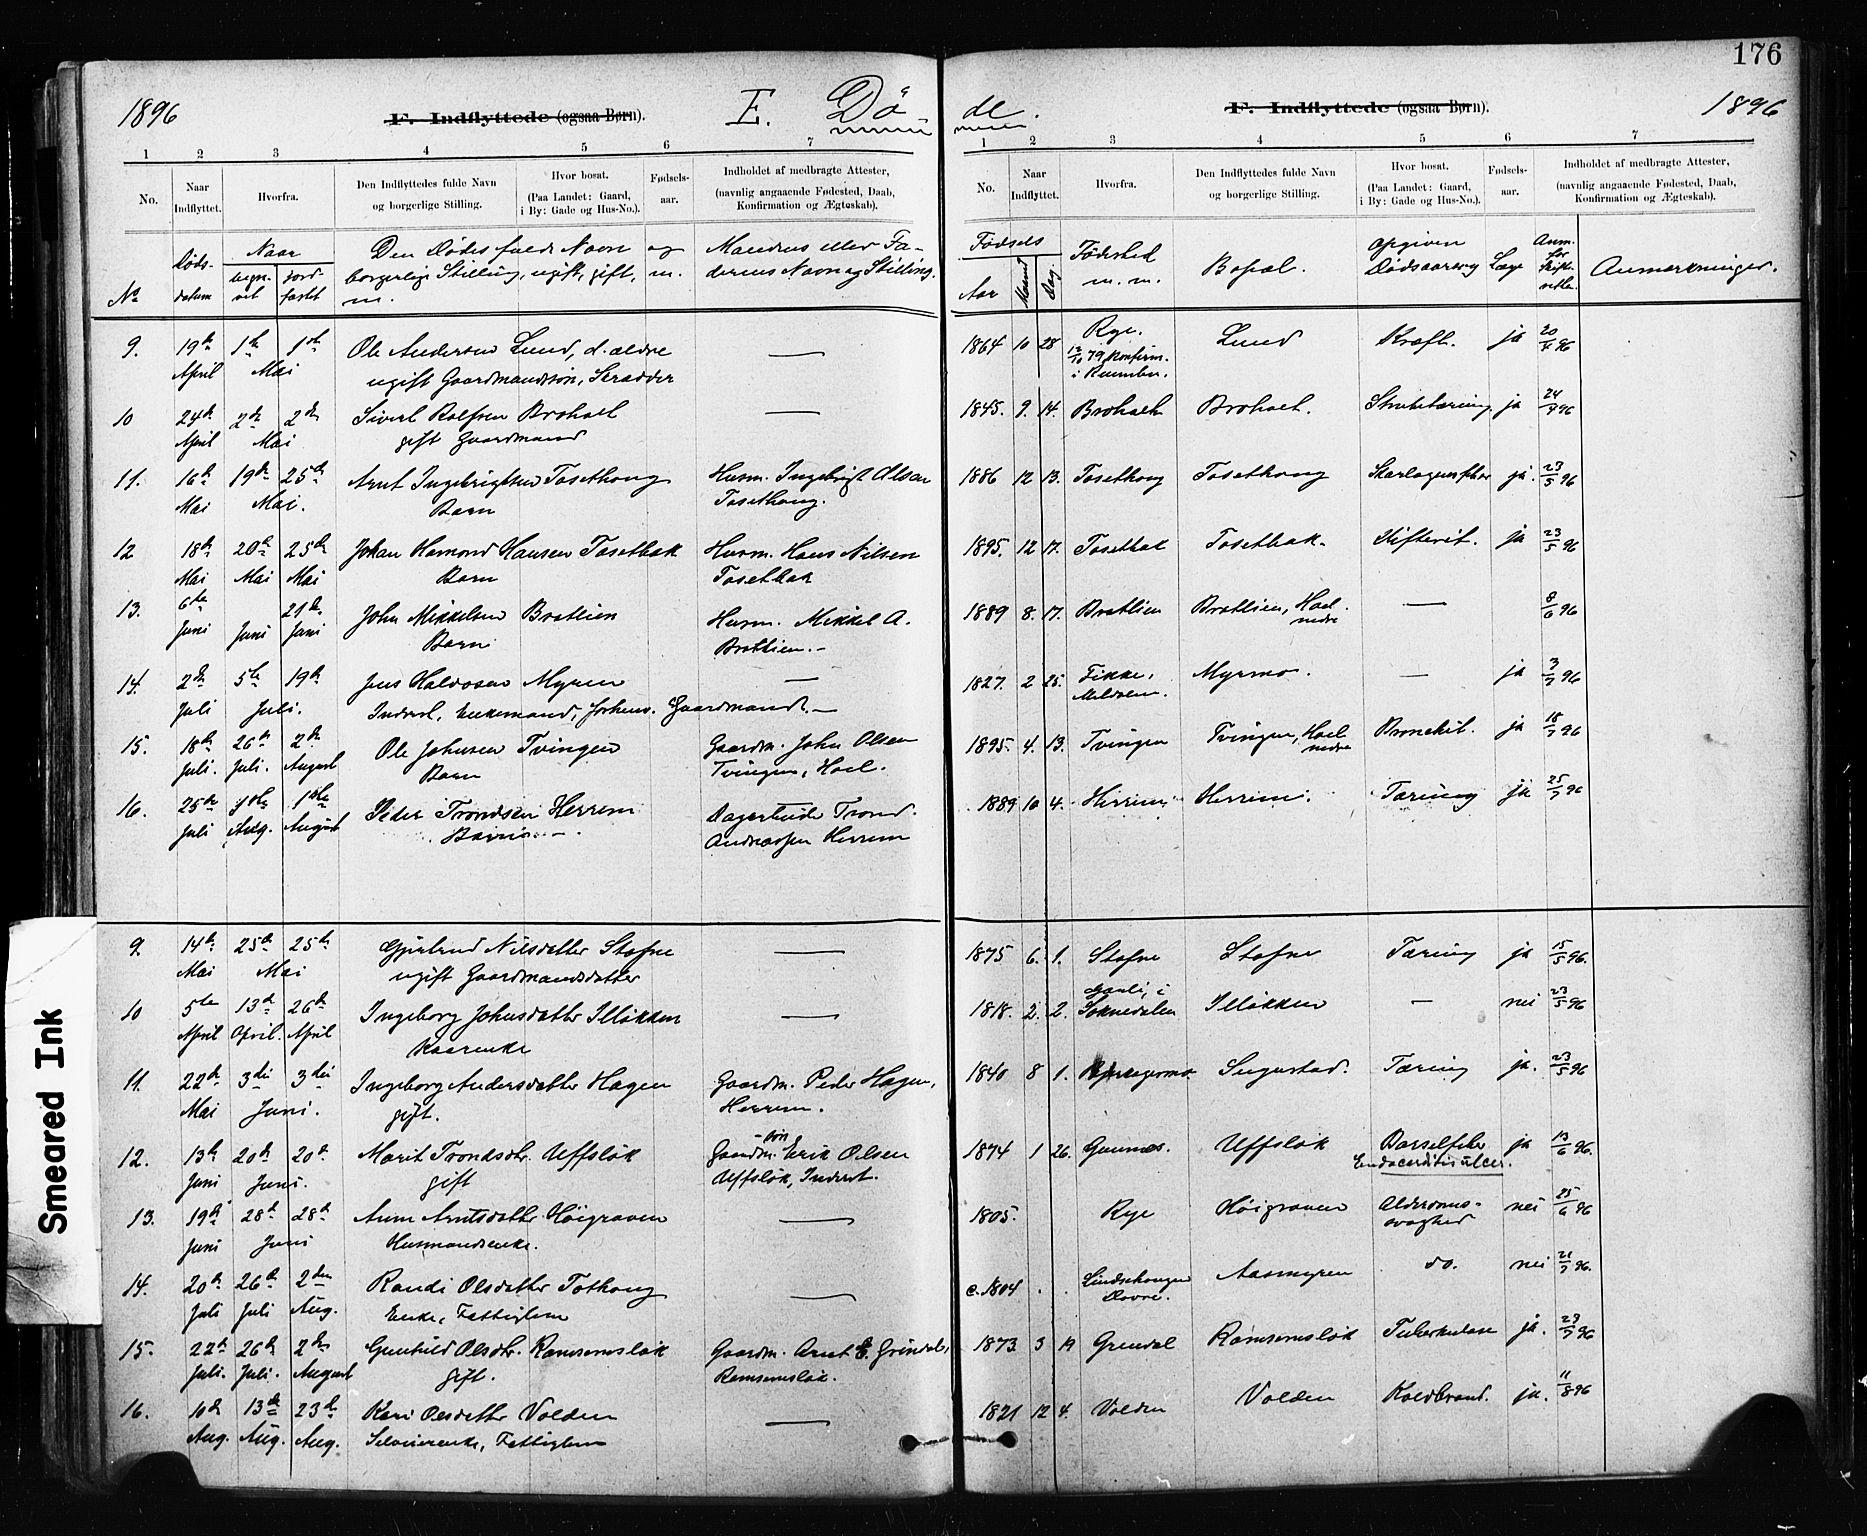 176
1896 F. Indflyttede (ogsaa Børn). E. Dö de. F. Indflyttede (ogsaa Børn). 1896
1 2 3 4 5 6 7 1 2 3 4 5 6 7
No. Naar Indflyttet. Hvorfra. Den Indflyttedes fulde Navn og borgerlige Stilling. Hvor bosat. (Paa Landet: Gaard, i By: Gade og Hus-No.). Fødsels-aar. Indholdet af medbragte Attester, (navnlig angaaende Fødested, Daab, Konfirmation og Ægteskab).
No. Naar Indflyttet. Hvorfra. Den Indflyttedes fulde Navn og borgerlige Stilling. Hvor bosat. (Paa Landet: Gaard, i By: Gade og Hus-No.). Fødsels-aar. Indholdet af medbragte Attester, (navnlig angaaende Fødested, Daab, Konfirmation og Ægteskab).
No Døds-datum Naar jordfæstet Den Dødes fulde Navn og borgerlige Stilling, ugift, gift, m. m. Mandens eller Faderens Navn og Stilling.
Fødsels Aar Maaned Dag Fødested m. m. Bopæl. opgiven Dødsaarsag Læge Anm. for Skifteretten Anmærkninger.
9. 19de 1ste 1ste Ole Andersen Lund, d. ældre — 1864 10 28 Rye. Lund Kræft. ja 20/4 96
April Mai ugift Gaardmandssøn, Skrædder 12/10 79 konfirm. i Rennebu.
10 24de 2den 2den Sivert Rolfsen Brohoel — 1845. 9. 14. Brohoel Brohoel. Strubetæring ja 24/4 96
April Mai gift Gaardmand
11. 16de 19de 25de Arnt Ingebrigtsen Tosethoug Husm. Ingebrigt Olsen 1886 12 13. Tosethoug Tosethoug ja. 23/5 96
Mai Mai. Barn Tosethoug.
12 18de 20de 25de Johan Hamond Hansen Tosetbak Husm. Hans Nilsen 1895. 12 17. Tosetbak Tosetbak. Difterit. ja 23/5 96
Mai Mai Mai Barn Tosetbak
13. 6te 21de John Mikkelsen Bratlien Husm. Mikkel A. 1889 8. 17. Bratlien Bratlien, Hoel nedre — 8/6 96
Juni Juni Juni Barn Bratlien.
14. 2den 5te 19de Jens Halvosen Myren — 1827. 2 25. Fikke, Meldalen. Myrmo. — ja 3/7 96
Juli Juli. Inderst, Enkemand, forhenv. Gaardmand.
15. 18de 26de 2den Ole Johnsen Tvingen Gaardm. John Olsen 1895. 4. 13. Tvingen Tvingen, Hoel nedre Bronchit. ja 18/7 96
Juli. Juli. August Barn Tvingen, Hoel.
16. 25de 1ste 1ste Peder Trondsen Herrem Trond 1889 10 4. Herrem Herrem. Tæring ja 25/7 96
Juli Aug. August Barn. Andreassen Herrem
9. 14de 25de 25de Gjertrud Nilsdatter Stafne — 1875 6. 1. Stafne Stafne Tæring ja 15/5 96.
Mai Mai ugift Gaardmandsdatter
10 5te 13de 26de Ingeborg Johnsdatter Illøkken — 1818. 2. 2. i Soknedalen Illøkken — nei 23/5 96
April April. April Kaarenke
11. 22de 3die 3die Ingeborg Andersdatter Hagen Gaardm. Peder Hagen, 1840 8 1. Tæring ja. 23/5 96
Mai Juni. gift. Herrem.
12. 13de 20de 20de Marit Trondsdtr. Uffsløk Gaardm.-søn Erik Olsen 1874 1 26. Gunnes. Uffsløk Barselfeber ja 13/6 96.
Juni Juni. gift Uffsløk, Inderst. Endocarditis ulcer.
13. 19de 28de 28de Anne Arntsdatter Høigraven — 1805. Rye Høigraven Alderdoms-svaghed nei 25/6 96
Juni Juni Husmandsenke.
14. 20de 26de 2den Randi Olsdatter Tothoug — c. 1804 . . Dovre. Aasmyren do. nei 21/7 96.
Juli Juli Aug. Enke, Fattiglem
15. 22de 26de 2den Gunhild Olsdtr. Ramsemsløk Gaardm. Arnt E. Grindal, 1873 3 19 Grindal Ramsemsløk Tuberkulose ja. 23/7 96
Juli. Juli. August gift. Ramsemsløk.
16. 10de 13de 23de Kari Olsdatter Volden — 1821 12 4. Volden Volden Koldbrand. ja. 11/8 96
Aug. Aug. Aug. Fattiglem
Smeared Ink